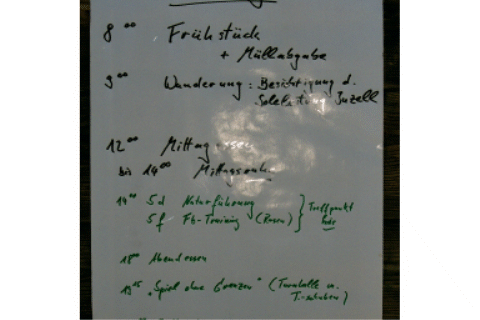 8 00 Frühstück
+ Müllabgabe
9 00 Wanderung: Besichtigung d.
Soleleitung Inzell
12 00 Mittagessen
bis 14 00 Mittagsruhe
14 00 5d Naturführung
5f Fb-Training (Rasen) } Treffpunkt
18 00 Abendessen
19 15 "Spiel ohne Grenzen" (Turnhalle u.
T-schuhen)